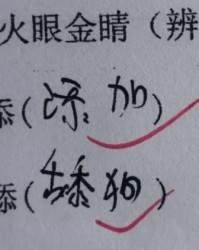 火眼金睛（辨
添（添加）
添（舔狗）